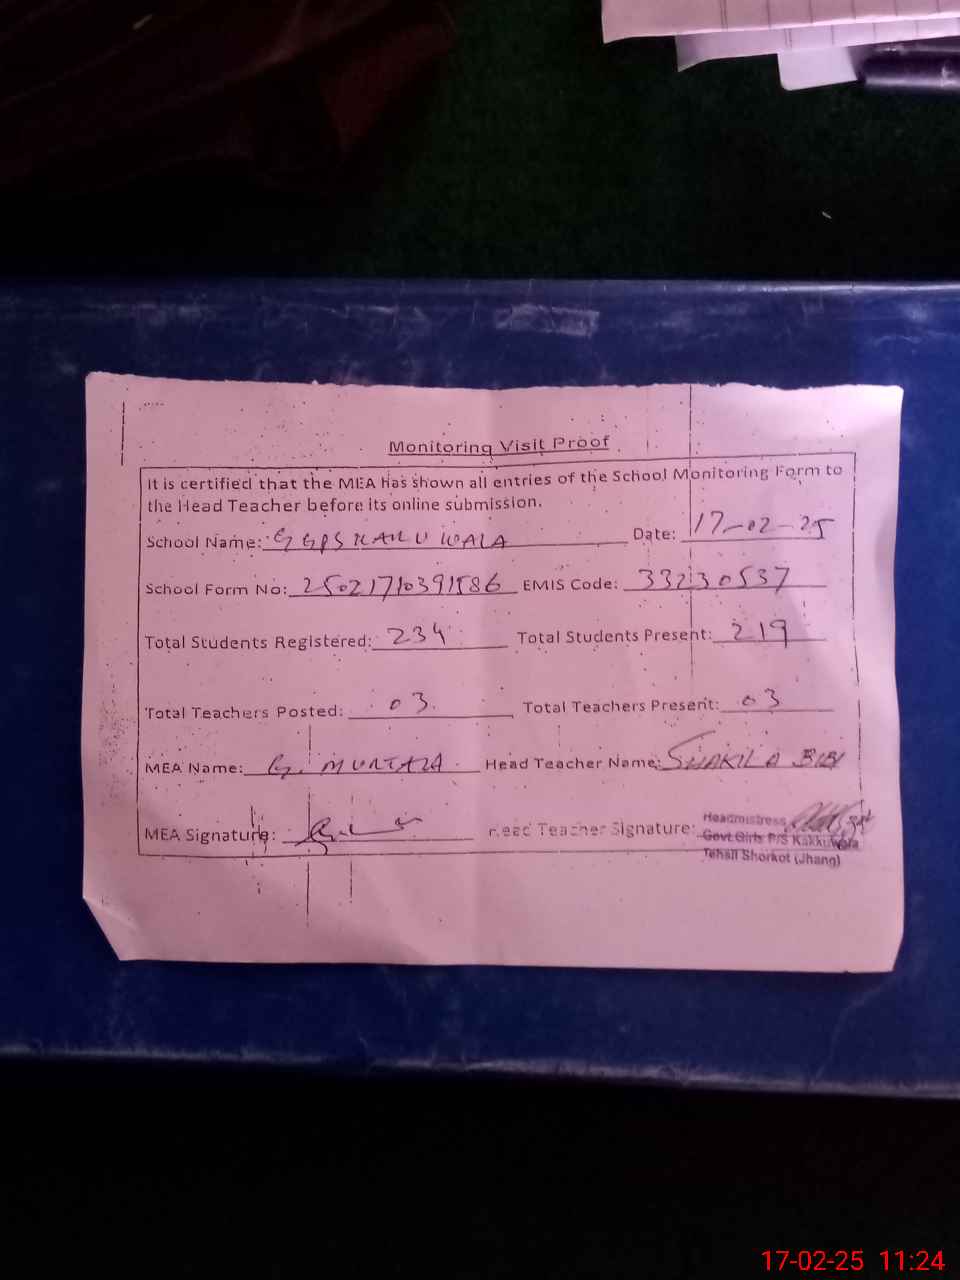 Monitoring Visit Proof
It is certified that the MEA has shown all entries of the School Monitoring Form to
the Head Teacher before its online submission.
School Name: GGPS KAKU WALA Date: 17-02-25
School Form No: 25021710391586 EMIS Code: 33230537
Total Students Registered: 234 Total Students Present: 219
Total Teachers Posted: 03 Total Teachers Present: 03
MEA Name: G. MURTAZA Head Teacher Name: SHAKILA BIBI
MEA Signature: Head Teacher Signature:
Headmistress
Govt Girls P/S Kakkuwala
Tehsil Shorkot (Jhang)
17-02-25 11:24